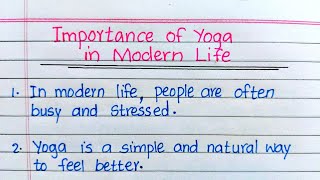 Importance of Yoga
in Modern Life
1. In modern life, people are often
busy and stressed.
2. Yoga is a simple and natural way
to feel better.